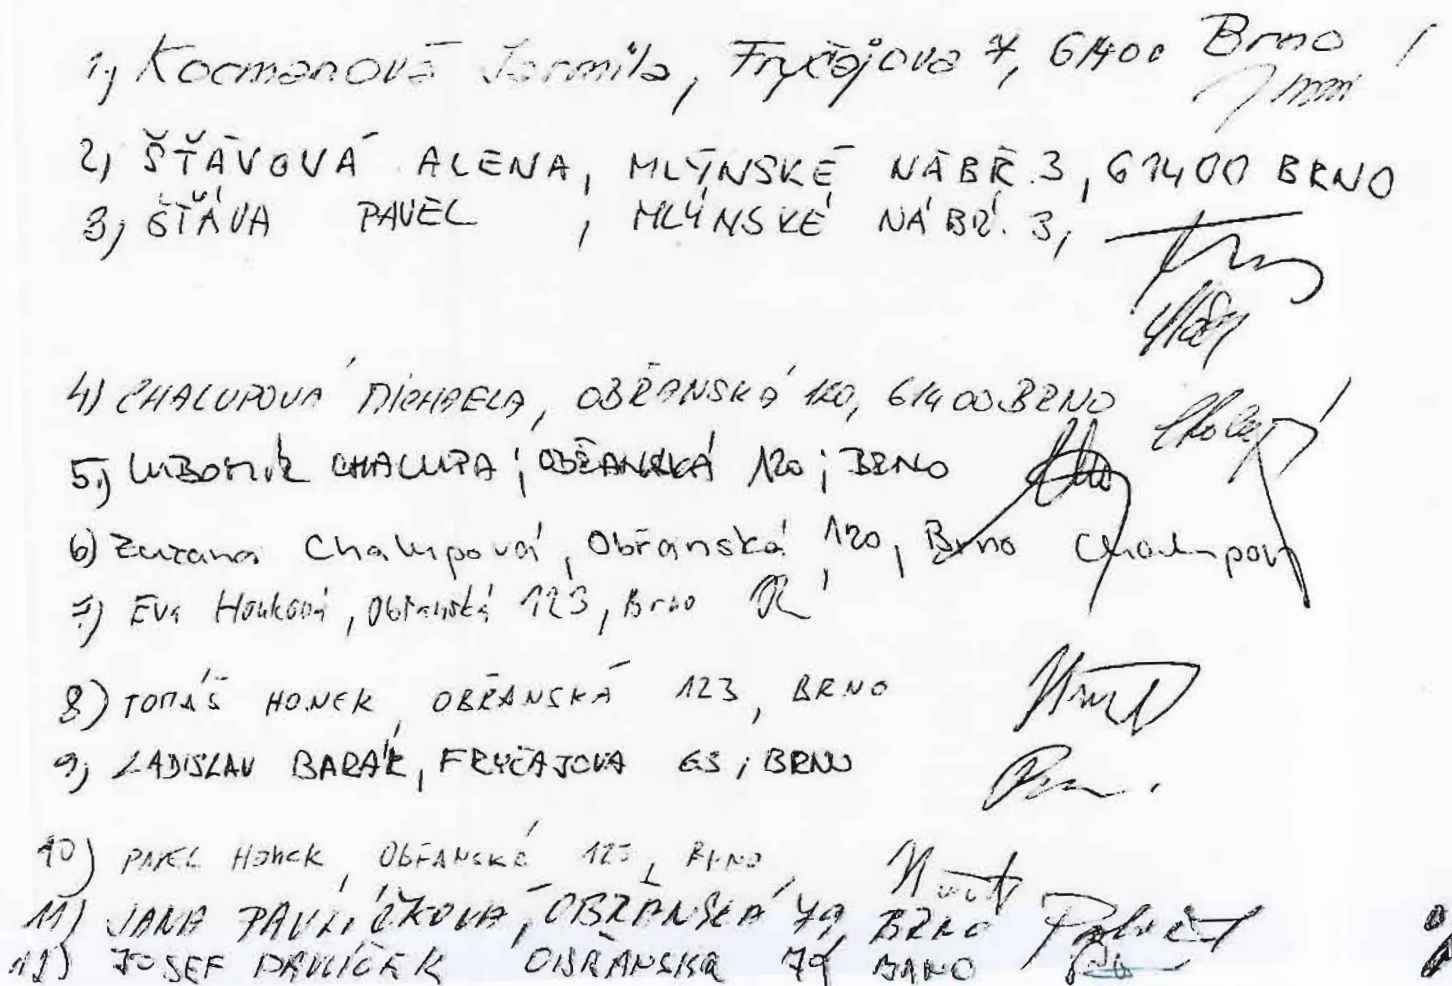 1, Kocmanová Jarmila, Fryčajova 7, 61400 Brno
2, ŠŤÁVOVÁ ALENA, MLÝNSKÉ NÁBŘ. 3, 61400 BRNO
3, ŠŤÁVA PAVEL, MLÝNSKÉ NÁBŘ. 3,
4) CHALUPOVÁ MICHAELA, OBŘANSKÁ 120, 61400 BRNO
5,) LUBOMÍR CHALUPA; OBŘANSKÁ 120; BRNO
6) Zuzana Chalupová, Obřanská 120, Brno Chalupová
7,) Eva Honková, Obřanská 123, Brno
8) TOMÁŠ HONEK, OBŘANSKÁ 123, BRNO
9, LADISLAV BARÁK, FRYČAJOVA 63; BRNO
10) PAVEL HONEK, OBŘANSKÁ 123, BRNO,
11) JANA PAVLÍČKOVÁ, OBŘANSKÁ 79, BRNO
12) JOSEF PAVLÍČEK OBŘANSKA 79 BRNO